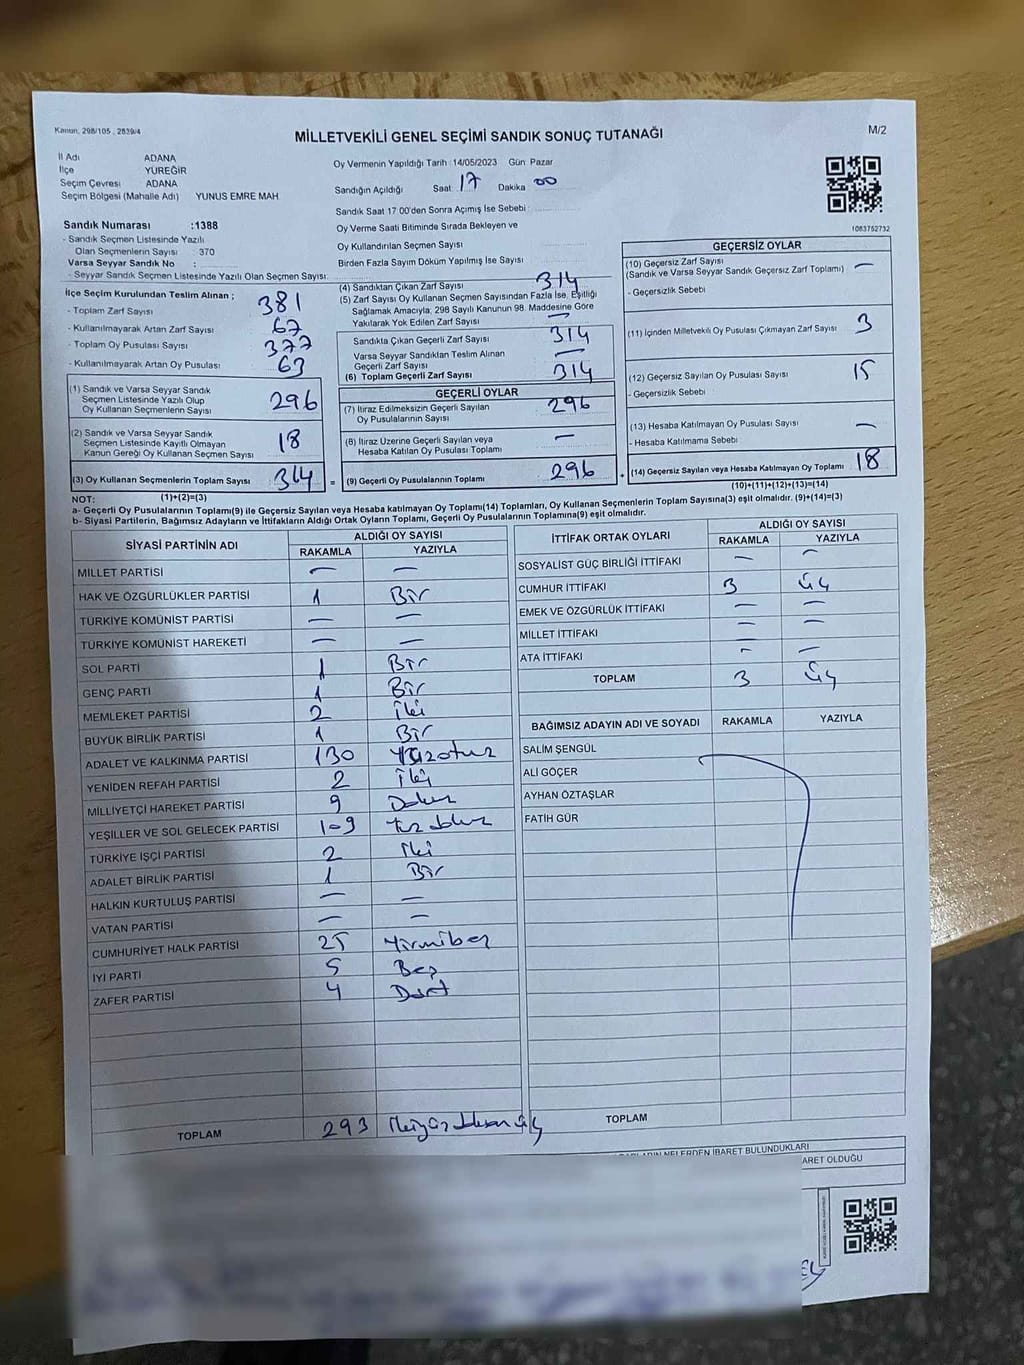 Kanun, 298/105 , 2839/4
MİLLETVEKİLİ GENEL SEÇİMİ SANDIK SONUÇ TUTANAĞI
M/2
İl Adı ADANA
İlçe YÜREĞİR
Seçim Çevresi ADANA
Seçim Bölgesi (Mahalle Adı) YUNUS EMRE MAH
Oy Vermenin Yapıldığı Tarih : 14/05/2023 Gün Pazar
Sandığın Açıldığı Saat 17 Dakika 00
Sandık Saat 17:00'den Sonra Açılmış İse Sebebi :
Oy Verme Saati Bitiminde Sırada Bekleyen ve
Oy Kullandırılan Seçmen Sayısı
Birden Fazla Sayım Döküm Yapılmış İse Sayısı
1083752732
Sandık Numarası :1388
- Sandık Seçmen Listesinde Yazılı
Olan Seçmenlerin Sayısı : 370
Varsa Seyyar Sandık No :
- Seyyar Sandık Seçmen Listesinde Yazılı Olan Seçmen Sayısı:
İlçe Seçim Kurulundan Teslim Alınan ;
- Toplam Zarf Sayısı 381
- Kullanılmayarak Artan Zarf Sayısı 67
- Toplam Oy Pusulası Sayısı 377
- Kullanılmayarak Artan Oy Pusulası 63
(1) Sandık ve Varsa Seyyar Sandık
Seçmen Listesinde Yazılı Olup
Oy Kullanan Seçmenlerin Sayısı 296
(2) Sandık ve Varsa Seyyar Sandık
Seçmen Listesinde Kayıtlı Olmayan
Kanun Gereği Oy Kullanan Seçmen Sayısı 18
(3) Oy Kullanan Seçmenlerin Toplam Sayısı 314 =
(1)+(2)=(3)
(4) Sandıktan Çıkan Zarf Sayısı 314
(5) Zarf Sayısı Oy Kullanan Seçmen Sayısından Fazla İse, Eşitliği
Sağlamak Amacıyla; 298 Sayılı Kanunun 98. Maddesine Göre
Yakılarak Yok Edilen Zarf Sayısı —
Sandıkta Çıkan Geçerli Zarf Sayısı 314
Varsa Seyyar Sandıktan Teslim Alınan
Geçerli Zarf Sayısı —
(6) Toplam Geçerli Zarf Sayısı 314
GEÇERLİ OYLAR
(7) İtiraz Edilmeksizin Geçerli Sayılan
Oy Pusulalarının Sayısı 296
(8) İtiraz Üzerine Geçerli Sayılan veya
Hesaba Katılan Oy Pusulası Toplamı —
(9) Geçerli Oy Pusulalarının Toplamı 296
GEÇERSİZ OYLAR
(10) Geçersiz Zarf Sayısı
(Sandık ve Varsa Seyyar Sandık Geçersiz Zarf Toplamı) —
- Geçersizlik Sebebi
(11) İçinden Milletvekili Oy Pusulası Çıkmayan Zarf Sayısı 3
(12) Geçersiz Sayılan Oy Pusulası Sayısı 15
- Geçersizlik Sebebi
(13) Hesaba Katılmayan Oy Pusulası Sayısı —
- Hesaba Katılmama Sebebi
(14) Geçersiz Sayılan veya Hesaba Katılmayan Oy Toplamı 18
(10)+(11)+(12)+(13)=(14)
NOT:
a- Geçerli Oy Pusulalarının Toplamı(9) ile Geçersiz Sayılan veya Hesaba katılmayan Oy Toplamı(14) Toplamları, Oy Kullanan Seçmenlerin Toplam Sayısına(3) eşit olmalıdır. (9)+(14)=(3)
b- Siyasi Partilerin, Bağımsız Adayların ve İttifakların Aldığı Ortak Oyların Toplamı, Geçerli Oy Pusulalarının Toplamına(9) eşit olmalıdır.
SİYASİ PARTİNİN ADI ALDIĞI OY SAYISI
RAKAMLA YAZIYLA
MİLLET PARTİSİ — —
HAK VE ÖZGÜRLÜKLER PARTİSİ 1 Bir
TÜRKİYE KOMÜNİST PARTİSİ — —
TÜRKİYE KOMÜNİST HAREKETİ — —
SOL PARTİ 1 Bir
GENÇ PARTİ 1 Bir
MEMLEKET PARTİSİ 2 İki
BÜYÜK BİRLİK PARTİSİ 1 Bir
ADALET VE KALKINMA PARTİSİ 130 Yüzotuz
YENİDEN REFAH PARTİSİ 2 İki
MİLLİYETÇİ HAREKET PARTİSİ 9 Dokuz
YEŞİLLER VE SOL GELECEK PARTİSİ 109 Yüz dokuz
TÜRKİYE İŞÇİ PARTİSİ 2 İki
ADALET BİRLİK PARTİSİ 1 Bir
HALKIN KURTULUŞ PARTİSİ — —
VATAN PARTİSİ — —
CUMHURİYET HALK PARTİSİ 25 Yirmibeş
İYİ PARTİ 5 Beş
ZAFER PARTİSİ 4 Dört
TOPLAM 293 İkiyüzdoksan üç
İTTİFAK ORTAK OYLARI ALDIĞI OY SAYISI
RAKAMLA YAZIYLA
SOSYALİST GÜÇ BİRLİĞİ İTTİFAKI — —
CUMHUR İTTİFAKI 3 Üç
EMEK VE ÖZGÜRLÜK İTTİFAKI — —
MİLLET İTTİFAKI — —
ATA İTTİFAKI — —
TOPLAM 3 Üç
BAĞIMSIZ ADAYIN ADI VE SOYADI RAKAMLA YAZIYLA
SALİM ŞENGÜL
ALİ GÖÇER
AYHAN ÖZTAŞLAR
FATİH GÜR
TOPLAM
NELERDEN İBARET BULUNDUKLARI
ARET OLDUĞU